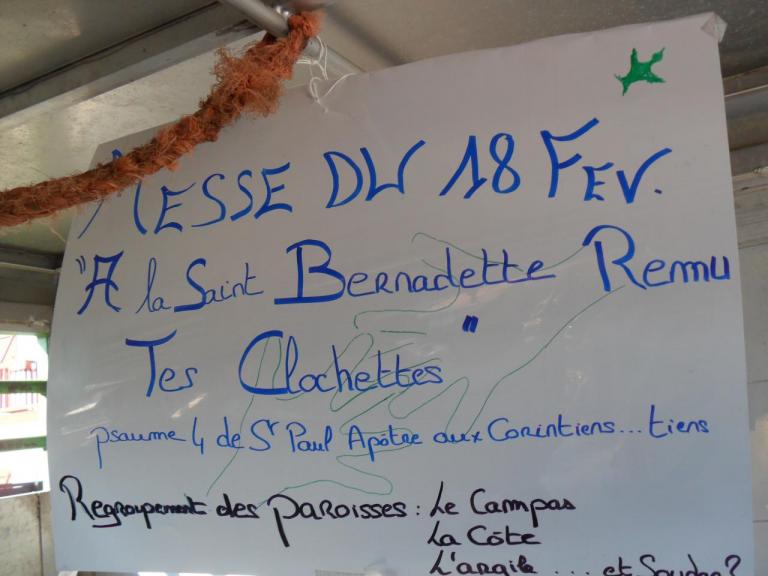 MESSE DU 18 FEV.
"A la Saint Bernadette Remu
Tes Clochettes"
psaume 4 de St Paul Apôtre aux Corintiens... tiens
Regroupement des paroisses : Le Campas
La Côte
L'argile .... et Soudan?